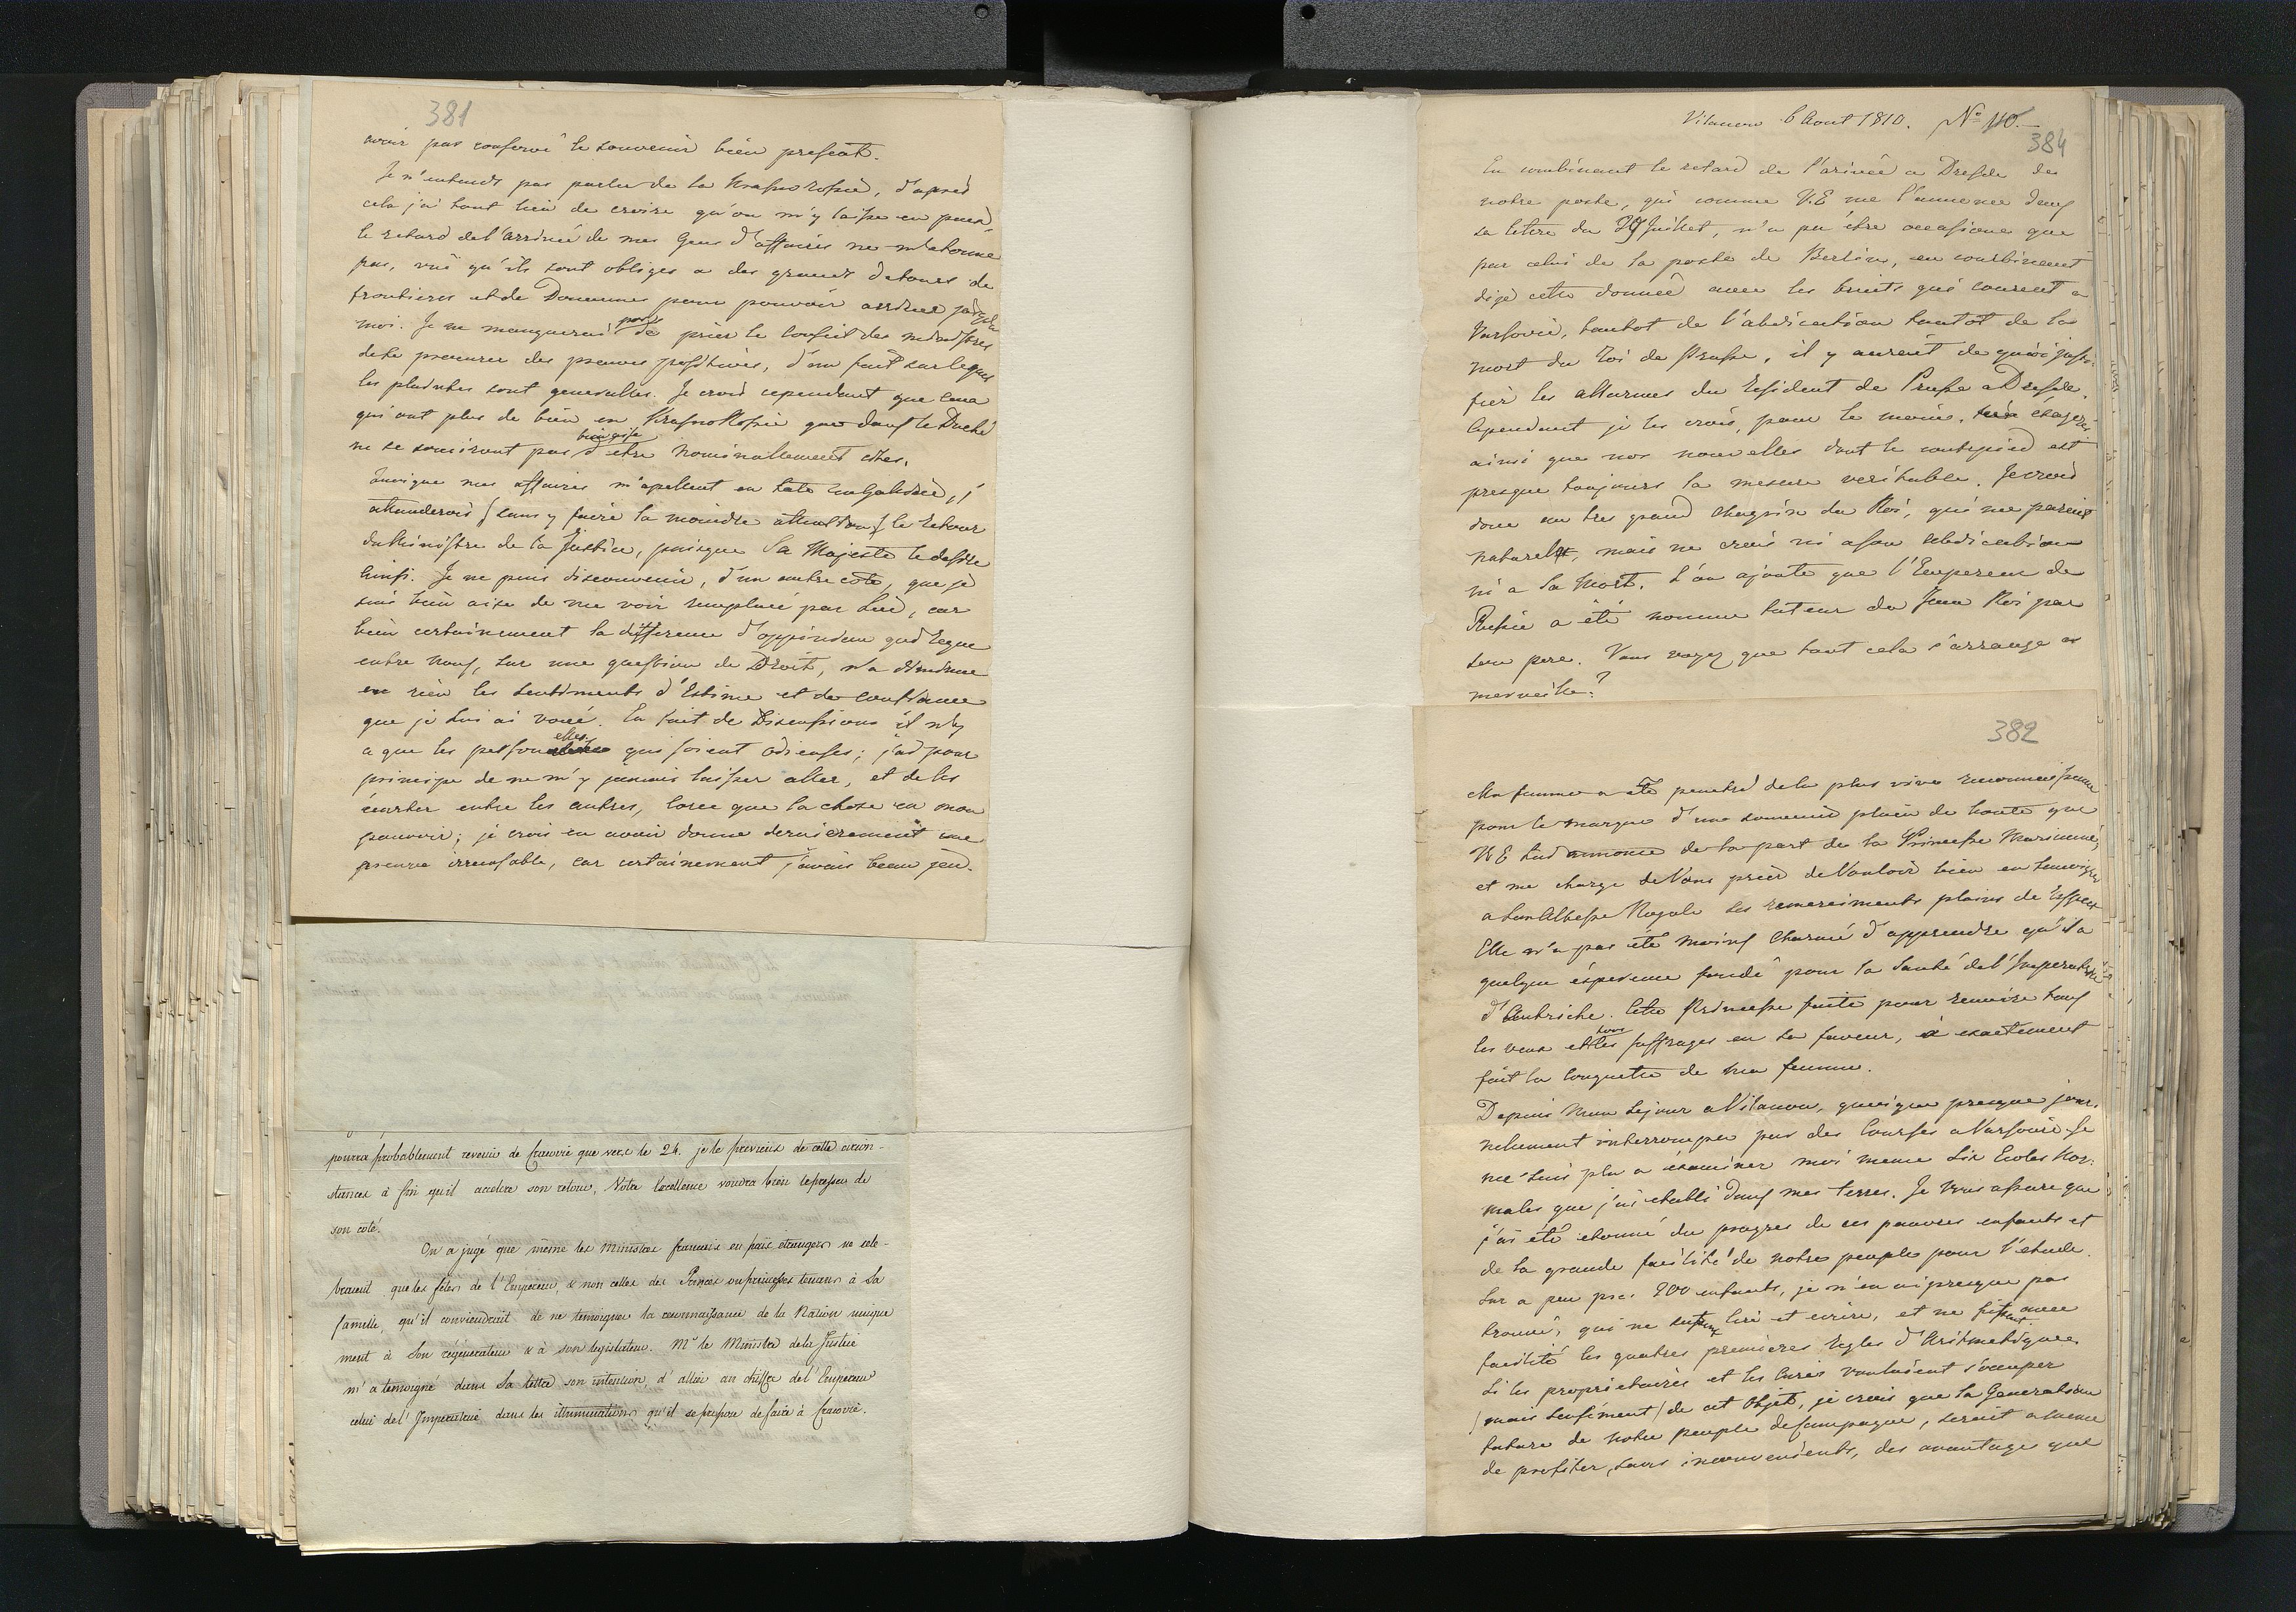 381
avoir pas conservé le souvenir bien present.
Je n'entends pas parler de la Krasnorossie, d'apres
cela j'ai tout lieu de croire qu'on m'y laisse en paix,
le retard de l'arrivée de mes Gens d'affaires ne m'etonne
pas, vuë qu'ils sont obliges a des grands detours de
frontieres et de Douannes pour pouvoir arriver jusqu'a
moi. Je ne manquerai pas de prier le Conseil des ministres
de te procurer des preuves positives, d'un fait sur lequel
les plaintes sont generalles. Je crois cependant que ceux
qui ont plus de bien en KrasnoRossie que dans le Duché
ne se souciront pas d'etre nominallement cités.
bien aise
Quoique mes affaires m'apellent en toute en Galicie, j'
attenderois (sans y faire la moindre attention) le retour
du Ministre de la Justice, puisque Sa Majesté le desire
ainsi. Je ne puis disconvenir, d'un autre coté, que je
suis bien aise de me voir remplacé par Lui, car
bien certainement la difference d'oppinion qui regne
entre nous, sur une question de Droit, n'a diminué
en rien les sentiments d'Estime et de confiance
que je lui ai voué. En fait de Discussions il n'y
a que les personelles qui soient odieuses; j'ai pour
principe de ne m'y jamais laisser aller, et de les
ecarter entre les autres, lorsque la chose en mon
pouvoir; je crois en avoir donné dernierement une
preuve irrecusable, car certainement j'avais beau jeu.
pourra probablement revenir de Cracovie que vers le 24. je le previens de cette circon-
stances à fin qu'il accelere son retour, Votre Excellence voudra bien le presser de
son coté.
On a jugé que même les Ministres francois en païs étrangers ne cele-
braient que les fêtes de l'Empereur, & non celles des Princes ou princesses tenans à Sa
famille, qu'il conviendrait de ne temoigner la reconnaissance de la Nation unique
ment à Son régénérateur & à son législateur. Mr le Ministre de la Justice
m'a temoigné dans Sa lettre son intention, d'allier au chiffre de l'Empereur
celui de l'Imperatrice dans les illuminations qu'il se propose de faire à Cracovie.
Vilanow 6 Aout 1810. No 110.
384
En combinant le retard de l'arivée a Dresde de
notre poste, qui comme V.E me l'annonce dans
sa lettre du 29 Juillet, n'a pu être occasioné que
par celui de la poste de Berlin, en combinant
dis-je cette donnée avec les bruits qui courent a
Varsovie, tantot de l'abdication tantot de la
mort du Roi de Prusse, il y auroit de quoi justi-
fier les allarmes du Resident de Prusse a Dresde.
Cependant je les crois, pour le moins, tres exagerés
ainsi que nos nouvelles dont le contrepied est
presque toujours la mesure veritable. Je crois
donc au tres grand chagrin du Roi, qui me parait
naturel, mais ne crois ni a son abdication
ni a Sa Mort. L'on ajoute que l'Empereur de
Russie a été nommé tuteur du Jeune Roi par
son pere. Vous voyez que tout cela s'arrange a
merveille?
382
Ma femme a été penetré de la plus vive reconnaissance
pour la marque d'un souvenir plein de bonté que
V.E lui annonce de la part de la Princesse Marianne,
et me charge de Vous prier de Vouloir bien en temoigner
a Son Altesse Royale ses remerciments plains de respect
Elle n'a pas été moins charmé d'apprendre qu'il a
quelque espérance fondé pour la Santé de l'Imperatrice
d'Autriche. Cette Princesse faite pour reunire tous
les voeux et tous les suffrages en sa faveur, a exactement
fait la Conquette de ma femme.
Depuis mon Sejour a Vilanow, quoique presque jour-
nelement interrompu par des Courses a Varsovie Je
me suis plu a éxaminer moi meme six Ecoles Nor-
males que j'ai etabli dans mes terres. Je Vous assure que
j'ai été étonné du progres de ces pauvres enfants et
de la grande facilité de notre peuple pour l'etude.
Sur a peu pres 200 enfants, je n'en ai presque pas
trouvé, qui ne sussent lire et ecrire, et ne fissent avec
facilité les quatres premieres Regles d'Aritmetique.
Si les proprietaires et les Curés vouloient s'occuper
(mais sensément) de cet Objet, je crois que la Generation
future de notre peuple de Campagne, seroit a meme
de profiter, sans inconvenients, des avantage que